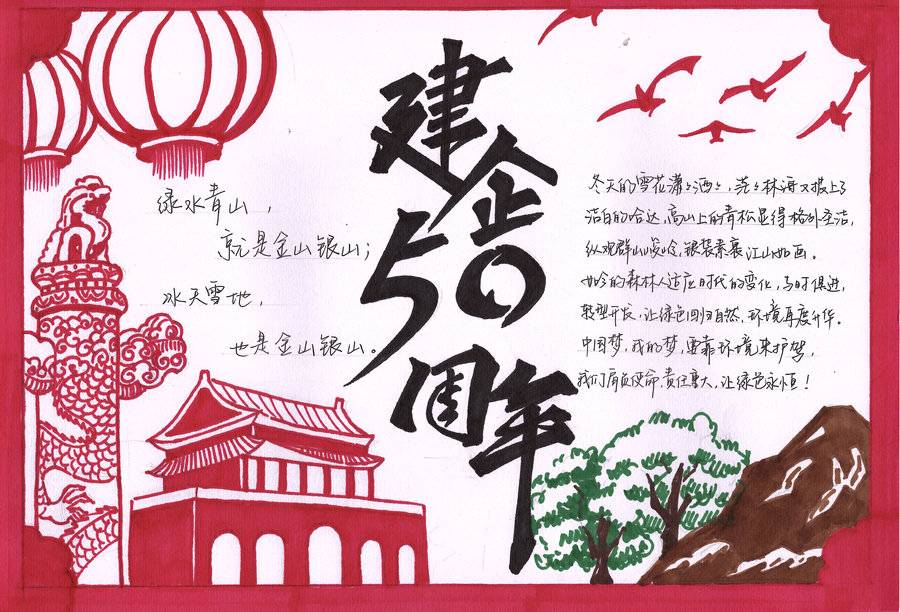 建企50周年
绿水青山，
就是金山银山；
冰天雪地，
也是金山银山。
冬天的雪花潇潇洒洒，茫茫林海又披上了
洁白的哈达，高山上的青松显得格外圣洁，
纵观群山峻岭，银装素裹江山如画。
如今的森林人适应时代的变化，与时俱进，
转型开拓，让绿色回归自然，环境再度升华。
中国梦，我的梦，要靠环境来护驾，
我们肩负使命责任重大，让绿色永恒！